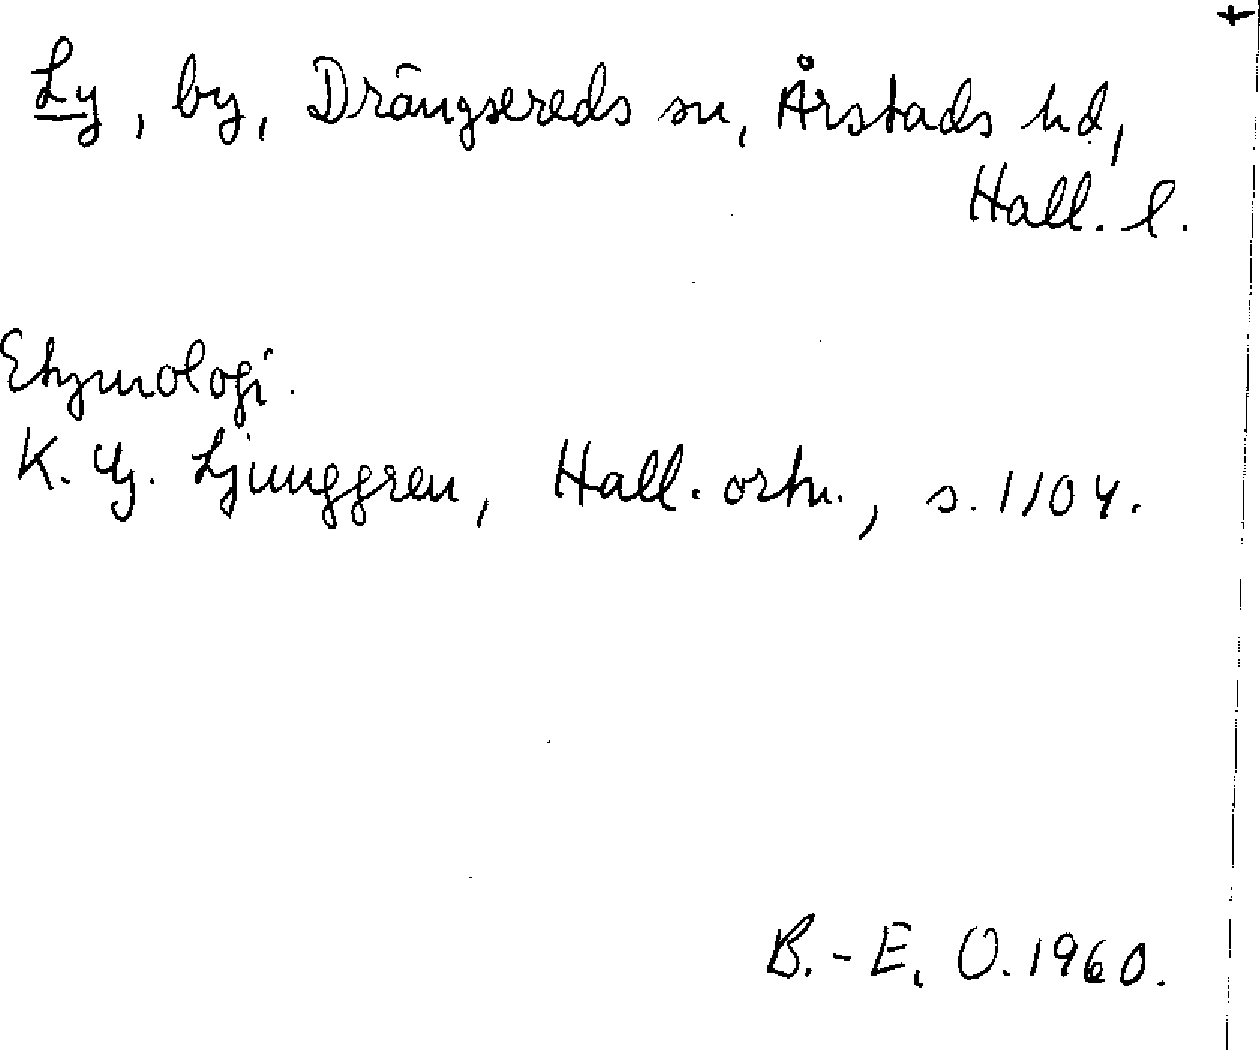 Ly, by, Drängsereds sn, Årstads hd,
Hall. l.
Etymologi.
K. G. Ljunggren, Hall. ortn., s. 1104.
B.-E. O. 1960.